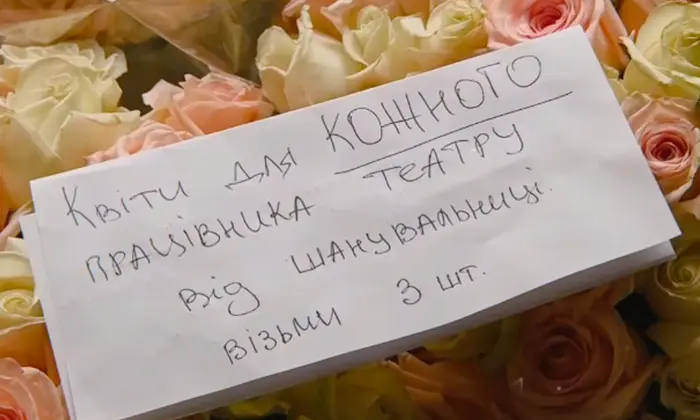 Квіти для КОЖНОГО
працівника театру
від шанувальниці.
Візьми 3 шт.